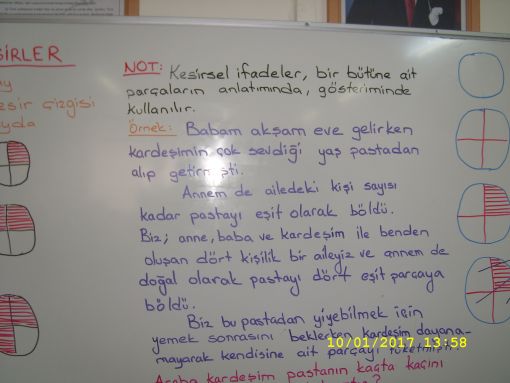 SİRLER
NOT: Kesirsel ifadeler, bir bütüne ait
parçaların anlatımında, gösteriminde
kullanılır.
esir çizgisi
yda
Örnek: Babam akşam eve gelirken
kardeşimin çok sevdiği yaş pastadan
alıp getirmişti.
Annem de ailedeki kişi sayısı
kadar pastayı eşit olarak böldü.
Biz; anne, baba ve kardeşim ile benden
oluşan dört kişilik bir aileyiz ve annem de
doğal olarak pastayı dört eşit parçaya
böldü.
Biz bu pastadan yiyebilmek için
yemek sonrasını beklerken kardeşim dayana-
mayarak kendisine ait parçayı tüketmişti.
Acaba kardeşim pastanın kaçta kaçını
10/01/2017 13:58